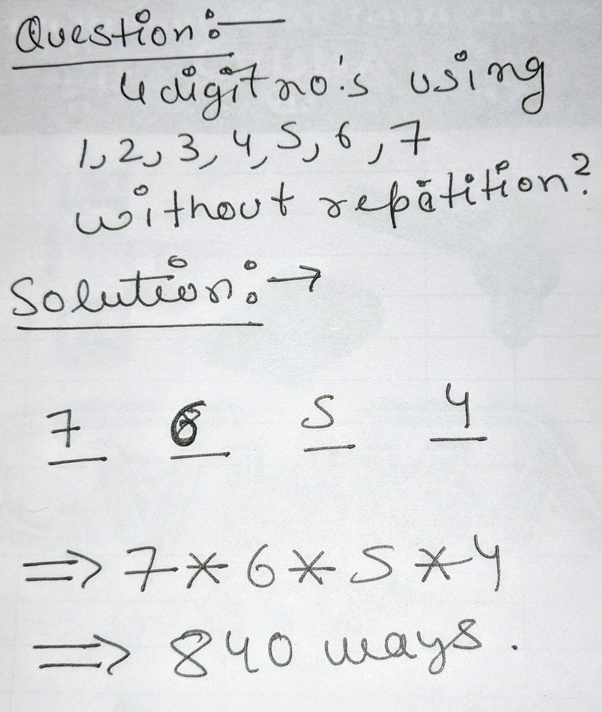 Question:-
4 digit no's using
1, 2, 3, 4, 5, 6, 7
without repatition?
Solution:→
7 6 5 4
⇒ 7 * 6 * 5 * 4
⇒ 840 ways.